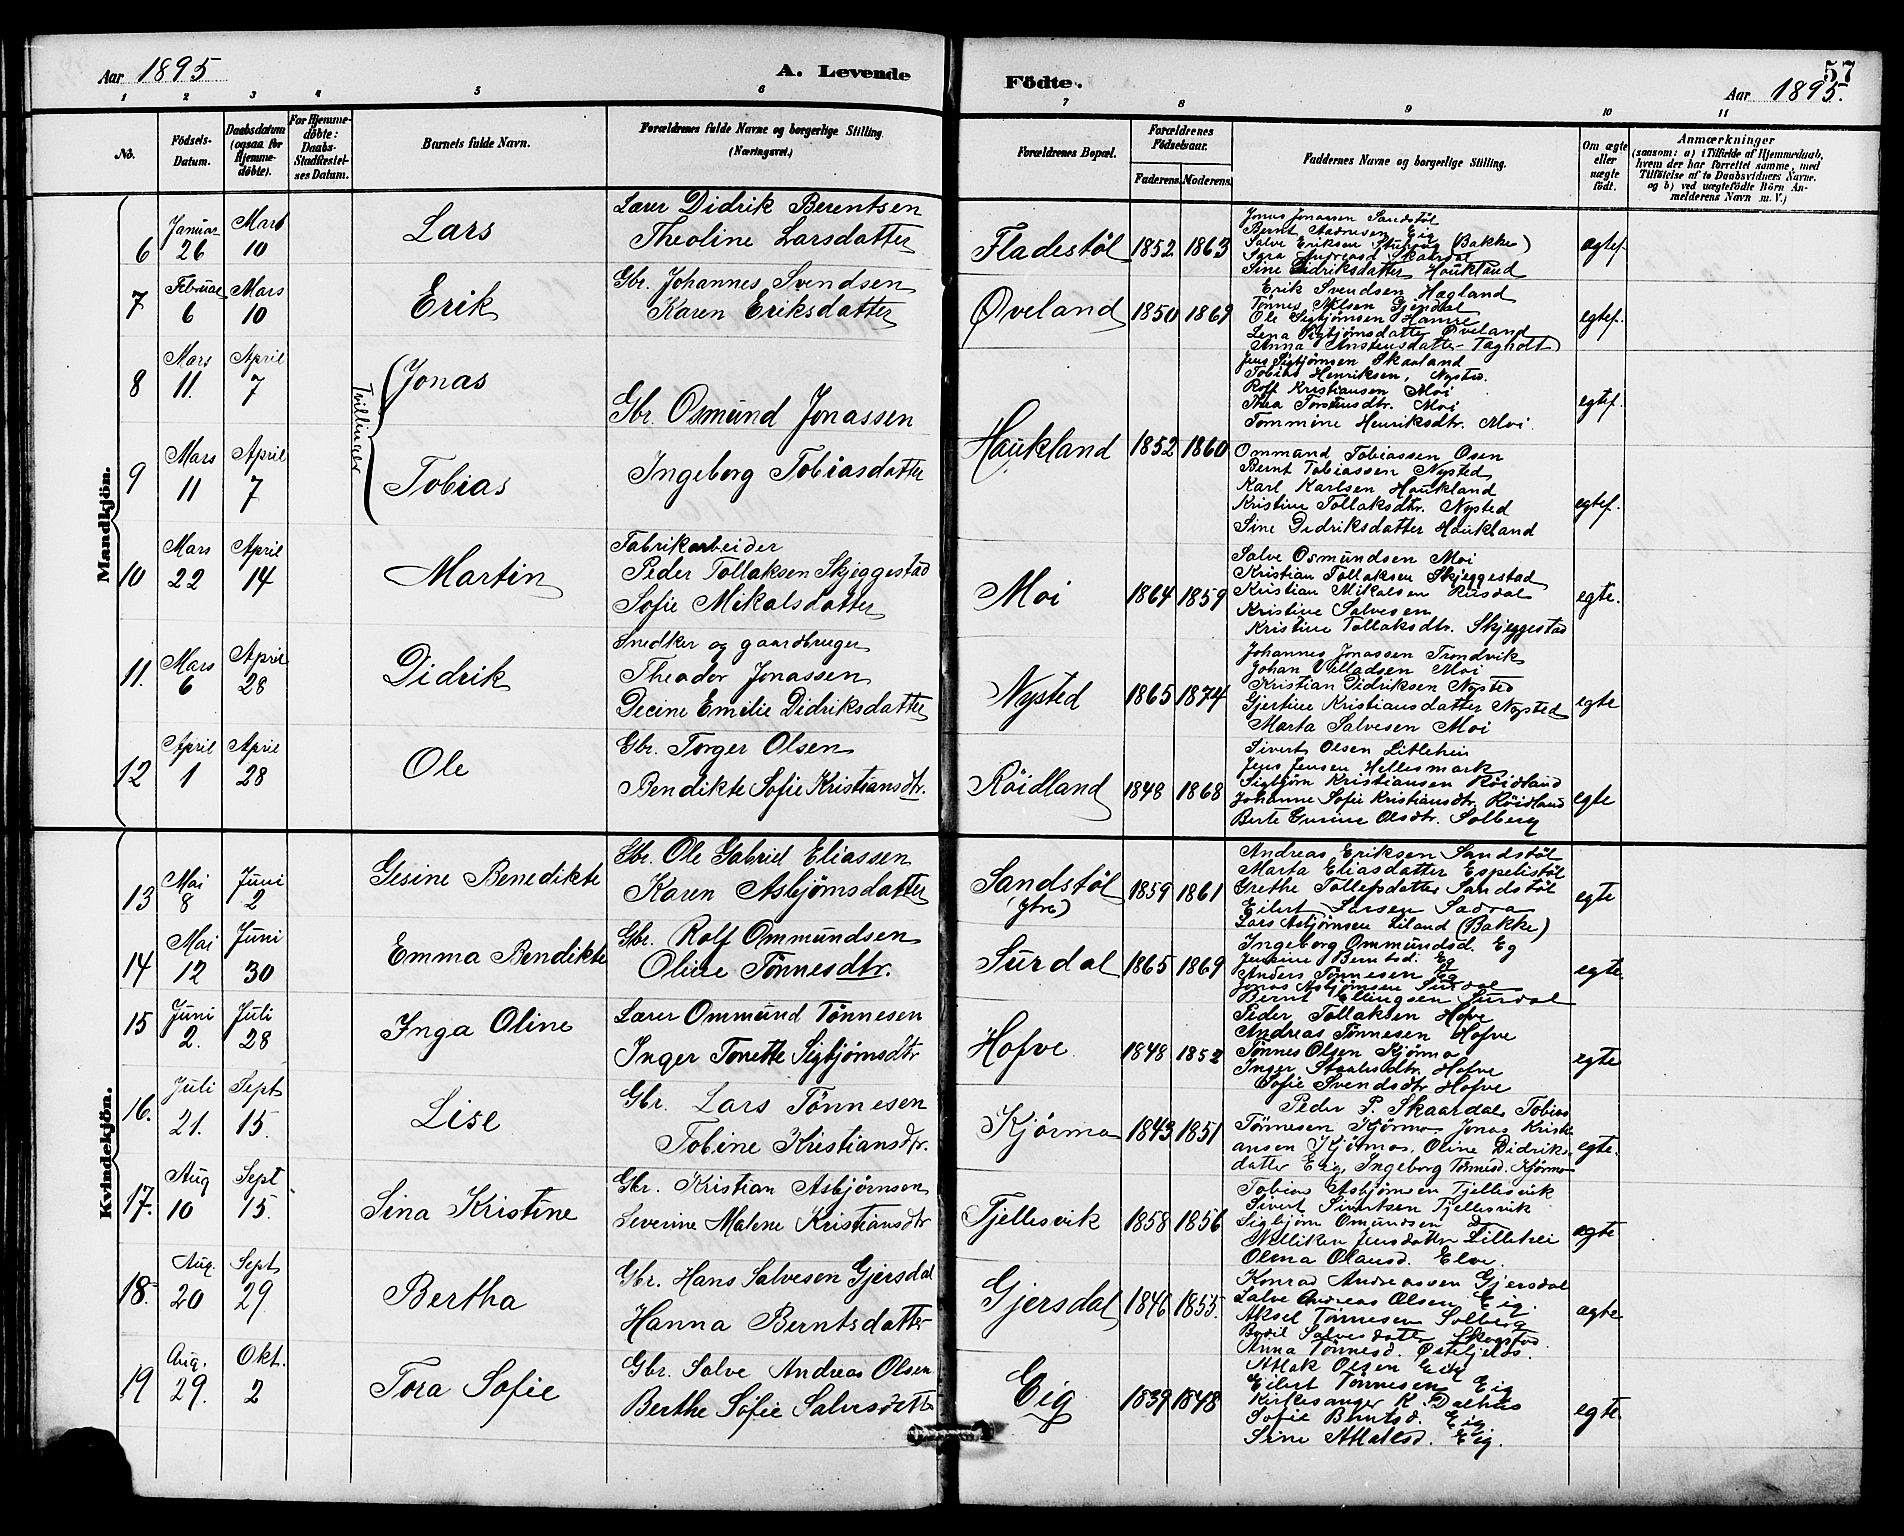 Aar 1895
A. Levende
Födte.
57
Aar 1895.
1 2 3 4 5 6 7 8 9 10 11
No.
Födsels-Datum.
Daabsdatum (ogsaa for Hjemmedöbte).
For Hjemmedöbte: Daabs-Stadfæstelses Datum.
Barnets fulde Navn.
Forældrenes fulde Navne og borgerlige Stilling. (Næringsvei.)
Forældrenes Bopæl.
Forældrenes Födselsaar.
Faderens. Moderens.
Faddernes Navne og borgerlige Stilling.
Om ægte eller uægte födt.
Anmærkninger
(saasom: a) i Tilfælde af Hjemmedaab, hvem der har forrettet samme, med Tilföielse af to Daabsvidners Navne. og b) ved uægtefödte Börn Anmelderens Navn m. V.)
Mandkjön.
6 Januar 26 Mars 10
Lars
Lærer Didrik Berentsen
Theoline Larsdatter
Fladestöl 1852 1863
Jonas Jonassen Sandstöl
Bernt Andresen Eig
Salve Eriksen (Bakke)
Sine Didriksdatter Haukland
ægtef.
7 Februar 6 Mars 10
Erik
Gbr. Johannes Svendsen
Karen Eriksdatter
Øveland 1850 1869
Erik Svendsen Hægland
Tønnes Nilsen
Ole Sigbjørnsen Hamre
Lena Sigbjørnsdatter Øveland
Anna
egtef.
8 Mars 11. April 7
Tvillinger
Jonas
Gbr. Osmund Jonassen
Jens Sigbjørnsen Skaaland
Tobias Henriksen, Nysted.
Rolf Kristiansen Moi
Thea Torsteinsdtr. Moi
Tommine Henriksdtr. Moi.
egtef.
Haukland 1852 1860
9 Mars 11 April 7
Tobias
Ingeborg Tobiasdatter
Ommund Tobiassen Osen
Bernt Tobiassen Nysted
Karl Karlsen Haukland
Kristine Tollaksdtr. Nysted
Sine Didriksdatter Haukland
egtef.
10 Mars 22 April 14
Martin
Fabrikarbeider
Peder Tollaksen Skjeggestad
Sofie Mikalsdatter
Moi 1864 1859
Salve Osmundsen Moi
Kristian Tollaksen Skjeggestad
Kristian Mikalsen Risdal
Kristine Salvesen
Kristine Tollaksdtr. Skjeggestad
egte.
11. Mars 6 April 28
Didrik
Snedker og gaardbruger
Theador Jonassen
Decine Emilie Didriksdatter
Nysted 1865 1874
Johannes Jonassen Trondvik
Johan Villadsen Moi
Kristian Didriksen Nysted
Gjertine Kristiansdatter Nysted
Marta Salvesen Moi
egte
12 April 1 April 28
Ole
Gbr. Torger Olsen
Bendikte Sofie Kristiansdtr.
Röidland 1848 1868
Sivert Olsen Litlehei
Jens Jensen Hellesmark
Sigbjørn Kristiansen Röidland
Johanne Sofie Kristiansdtr. Röidland
Berte Gurine Olsdtr. Solberg
egte
Kvindekjön.
13 Mai 8 Juni 2
Gesine Benedikte
Gbr. Ole Gabriel Eliassen
Karen Asbjørnsdatter
Sandstöl (Ytre) 1859 1861
Andreas Eriksen Sandstöl
Marta Eliasdatter Espelistöl
Grethe Tollefsdatter Sandstöl
Eilert Larsen
Lars Asbjørnsen Eiland (Bakke)
egte
14 Mai 12 Juni 30
Emma Bendikte
Gbr. Rolf Ommundsen
Oline Tønnesdtr.
Surdal 1865 1869
Ingeborg Ommundsd. Eg
Berntsd. Eg
Anders Tønnesen Eg
Jonas Asbjørnsen Surdal
Bernt Ellingsen Surdal
egte.
15 Juni 2. Juli 28
Inga Oline
Lærer Ommund Tönnesen
Inger Tonette Sigbjørnsdtr
Hofve. 1848 1852
Peder Tollaksen Hofve
Andreas Tønnesen Hofve
Tønnes Olsen Kjørmo
Inger Staalesdtr. Hofve
Sofie Svendsdtr Hofve
egte
16. Juli 21. Sept 15.
Lise
Gbr. Lars Tønnesen
Tobine Kristiansdtr.
Kjørmo 1843 1851
Peder P. Skaardal, Tobias
Tønnesen Kjørmo, Jonas Kristi-
ansen Kjørmo, Oline Didriks-
datter Eig, Ingeborg Tønnesd. Kjørmo
egte.
17. Aug 10 Sept 15.
Sina Kristine
Gbr. Kristian Asbjørnsen
Severine Malene Kristiansdtr
Fjellesvik 1858 1856
Tobias Asbjørnsen Fjellesvik
Sivert Sivertsen Fjellesvik
Sigbjørn Omundsen
Jensdatter Lillehei
Olena Olausd. Elve.
ægte
18. Aug. 20 Sept 29.
Bertha
Gbr. Hans Salvesen Gjersdal
Hanna Berntsdatter
Gjersdal 1846 1855.
Konrad Andreassen Gjersdal
Salve Andreas Olsen Eig.
Aksel Tønnesen Solberg
Bodil Salvesdatter Skogstad
Anna Tønnesd.
ægte
19 Aug. 29. Okt. 2
Tora Sofie
Gbr. Salve Andreas Olsen
Berthe Sofie Salvesdatter
Eig 1839 1848
Atlak Olsen Eig
Eilert Tønnesen Eig
Kirkesanger K. Dalhus
Sofie Berntsd. Eig
Sine Atlaksd. Eig.
egte.